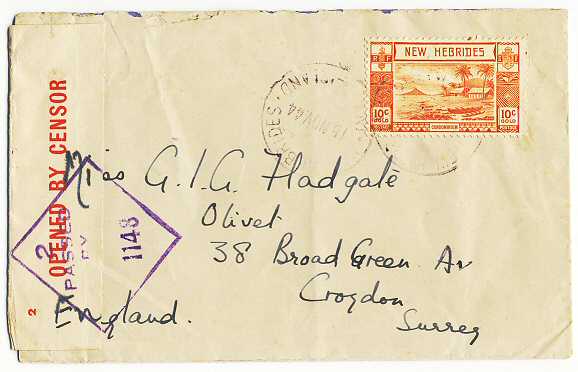 OPENED BY CENSOR
2
2
PASSED
BY
1148
NEW HEBRIDES
RF
10c
GOLD
10c
GOLD
15 NOV 44
Miss G.I.G. Hadgate
Olivet
38 Broad Green Av
Croydon
Surrey
England.